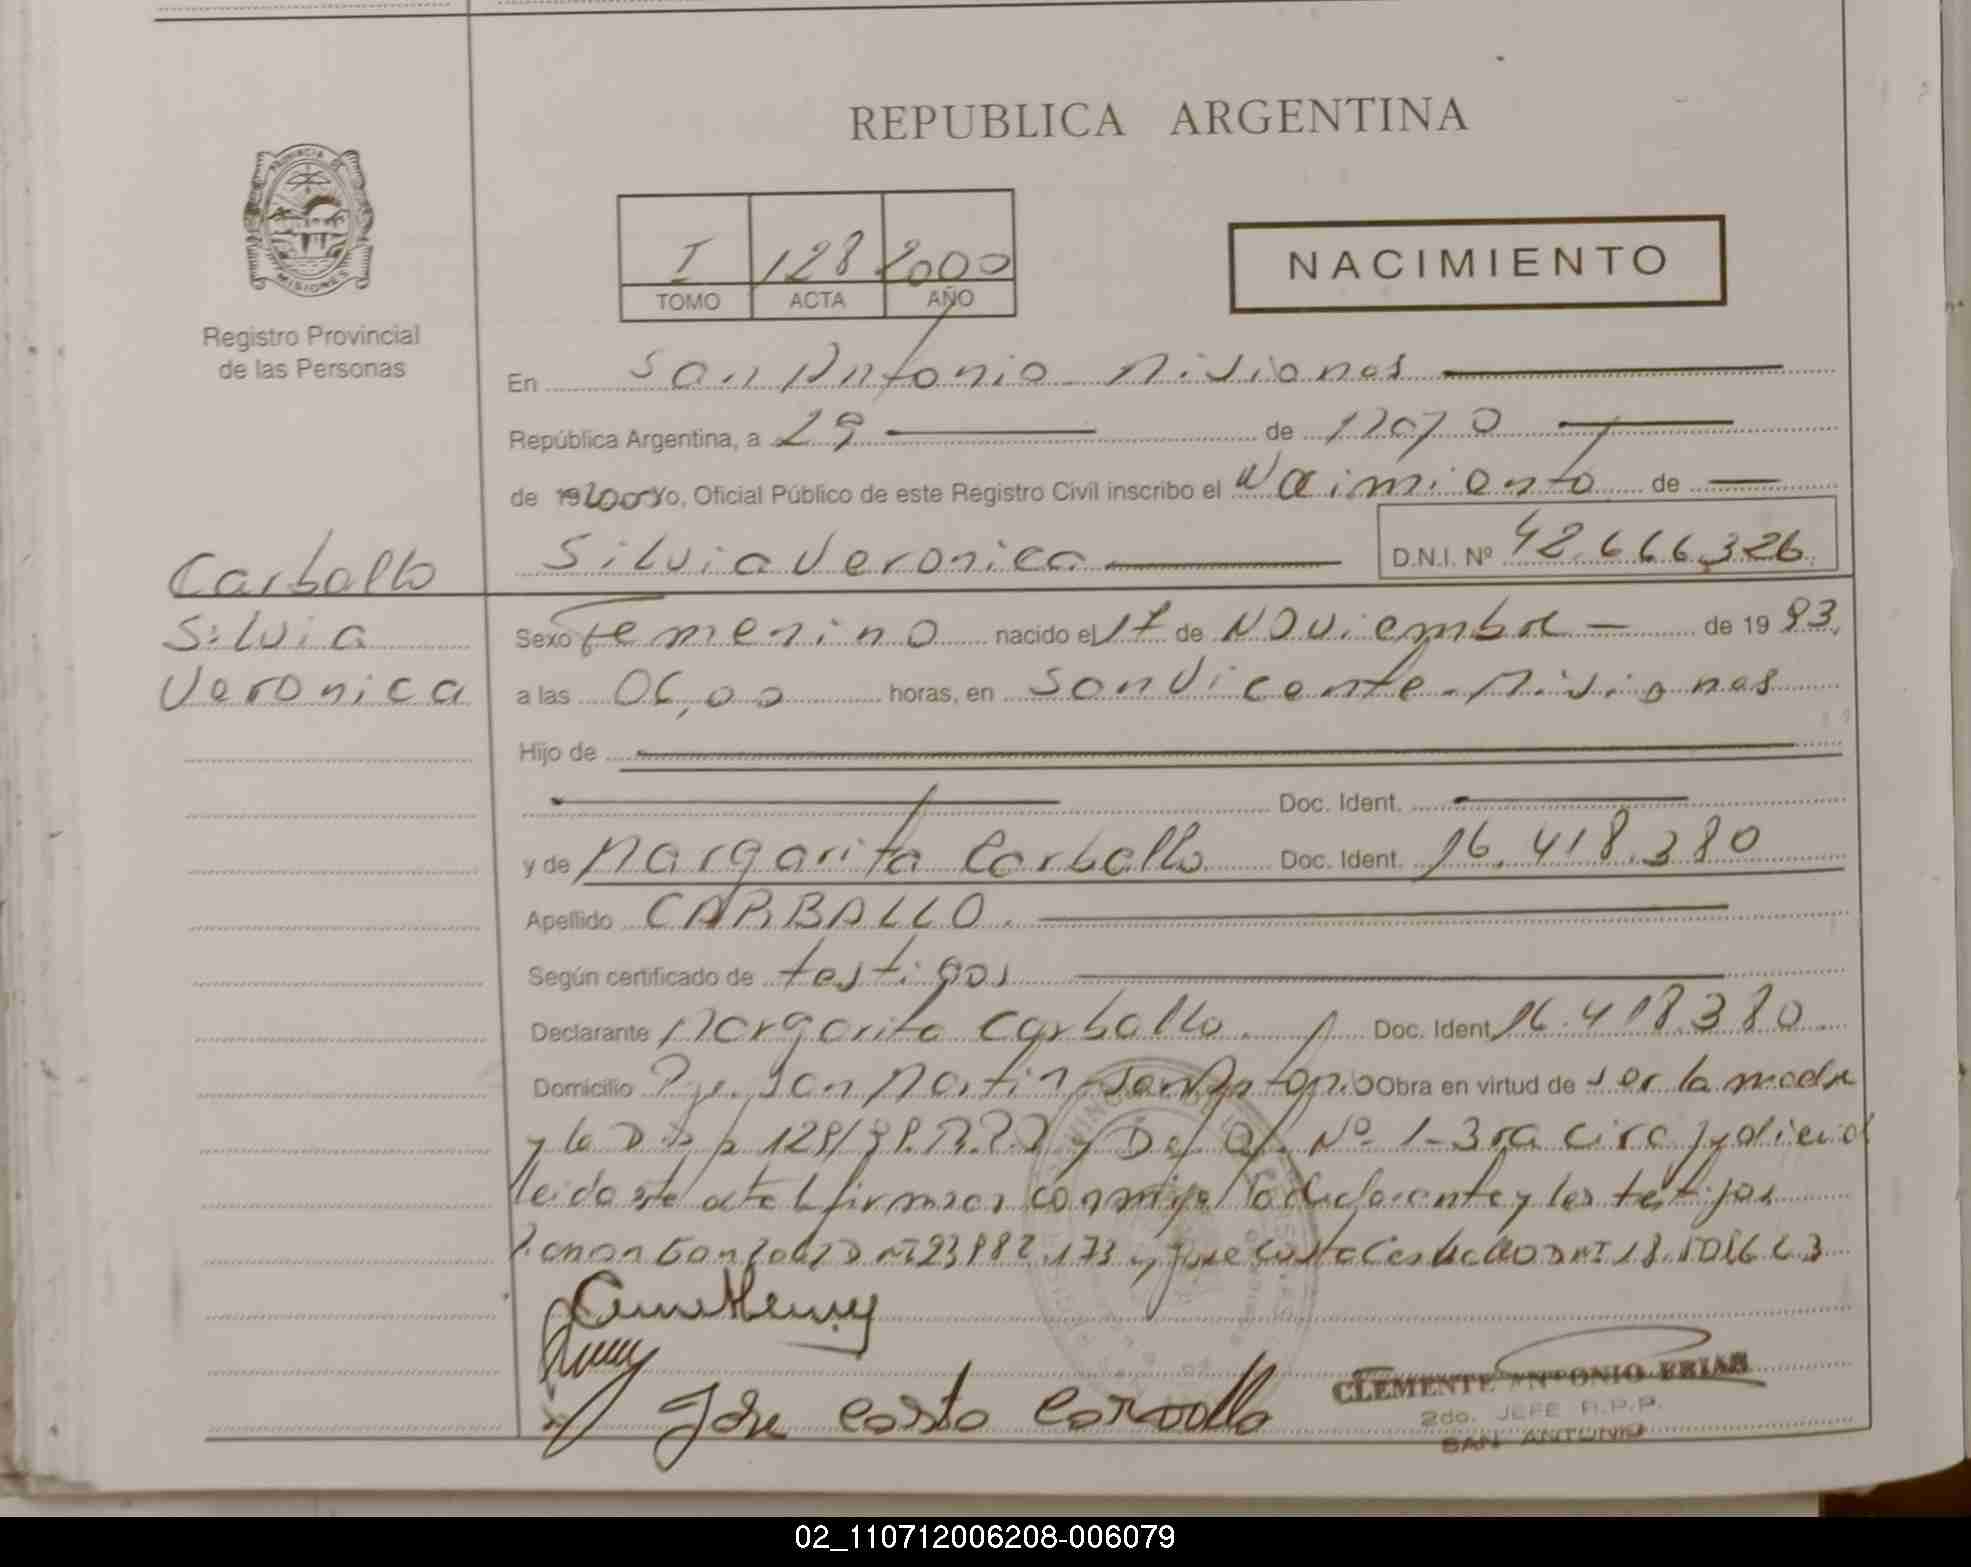 REPUBLICA ARGENTINA
PROVINCIA DE
MISIONES
Registro Provincial
de las Personas
I 128 2000
TOMO ACTA AÑO
NACIMIENTO
En San Antonio Misiones
República Argentina, a 29 de Mayo
de 192000 Yo, Oficial Público de este Registro Civil inscribo el Nacimiento de
Silvia Veronica D.N.I. Nº 42.666.326
Carballo
Silvia
Veronica
Sexo femenino nacido el 17 de Noviembre de 19 93,
a las 06,00 horas, en San Vicente - Misiones
Hijo de
Doc. Ident.
y de Margarita Carballo Doc. Ident. 16.418.380
Apellido CARBALLO.
Según certificado de testigos
Declarante Margarita Carballo. Doc. Ident. 16.418.380
Domicilio San Martin San Antonio Obra en virtud de ser la madre
y la Disp 128/98. R.P.P y Def. Of. Nº 1-3ra Circ Judicial
leida este acta firman conmigo la declarante y los testigos
Ramon Gonzalez DNI 23982.173 y Jose Costa Carballo DNI
Jose Costa Carvallo
CLEMENTE ANTONIO ERIAN
2do. JEFE R.P.P.
SAN ANTONIO
02_110712006208-006079